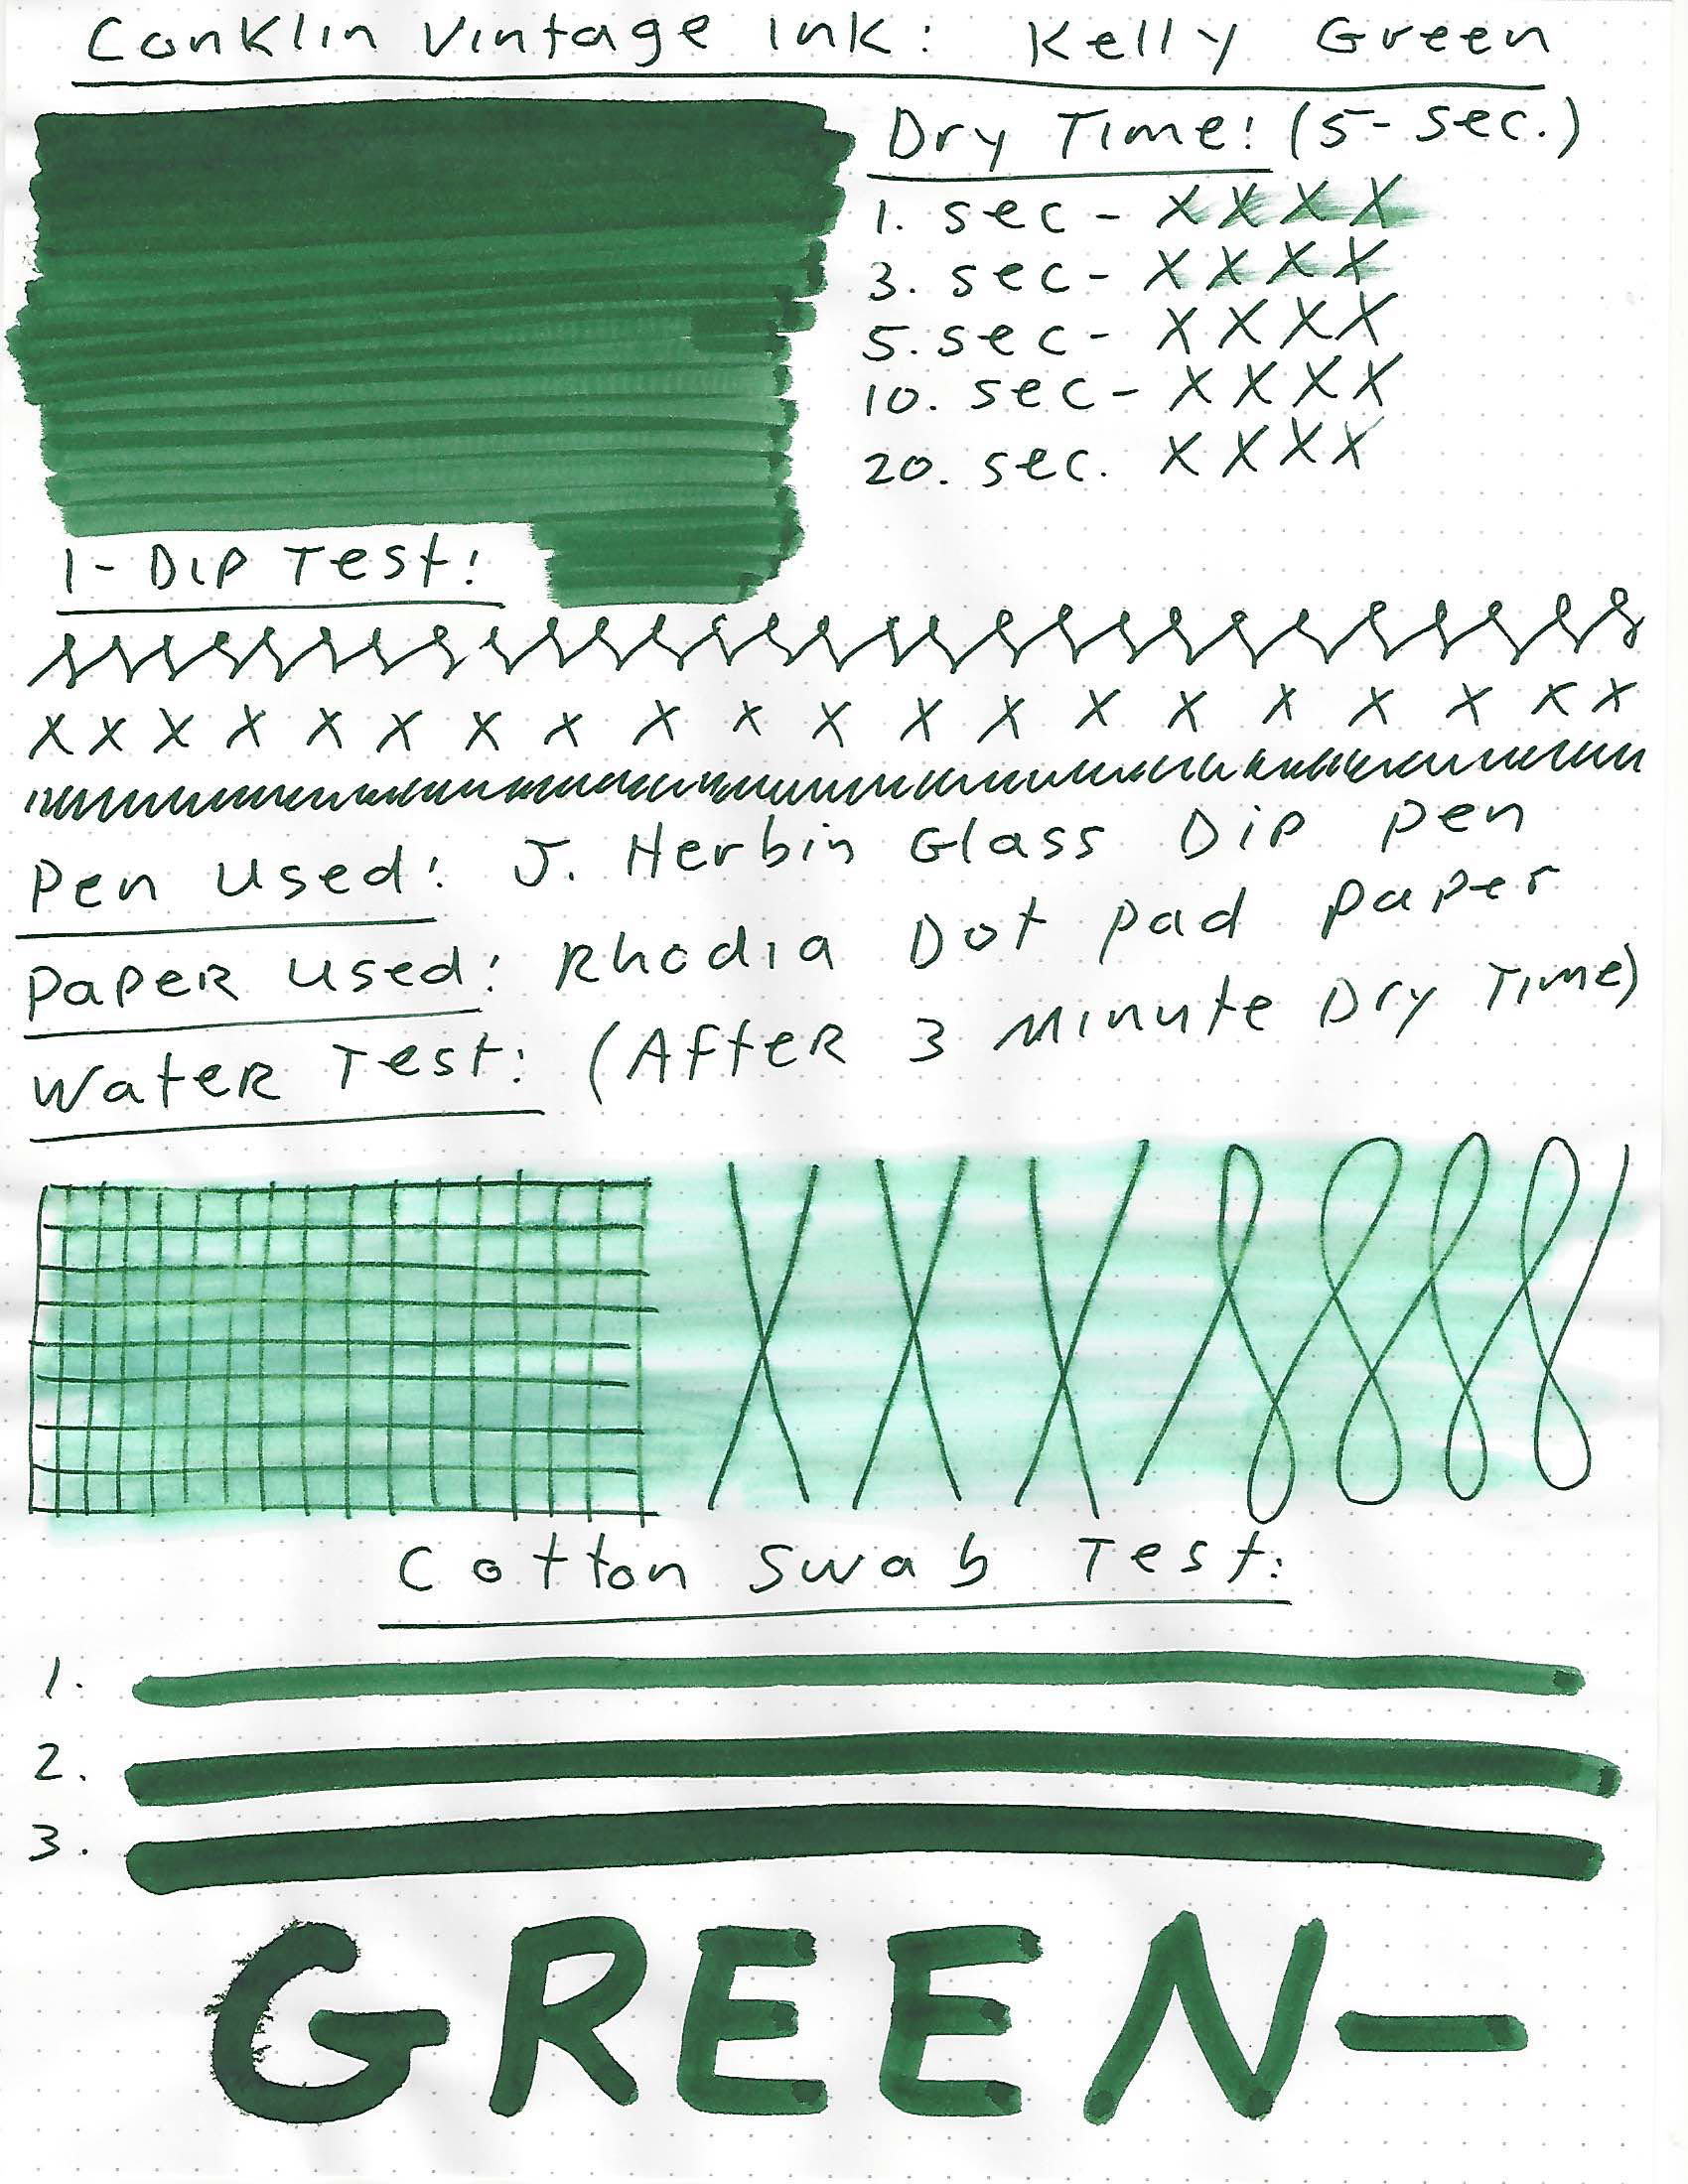 Conklin Vintage Ink: Kelly Green
Dry Time: (5-sec.)
1. sec - X X X X
3. sec - X X X X
5. sec - X X X X
10. sec - X X X X
20. sec. X X X X
1-Dip Test:
X X X X X X X X X X X X X X X X X X X X
Pen Used: J. Herbin Glass Dip Pen
Paper Used: Rhodia Dot Pad Paper
Water Test: (After 3 Minute Dry Time)
Cotton Swab Test:
1.
2.
3.
GREEN-